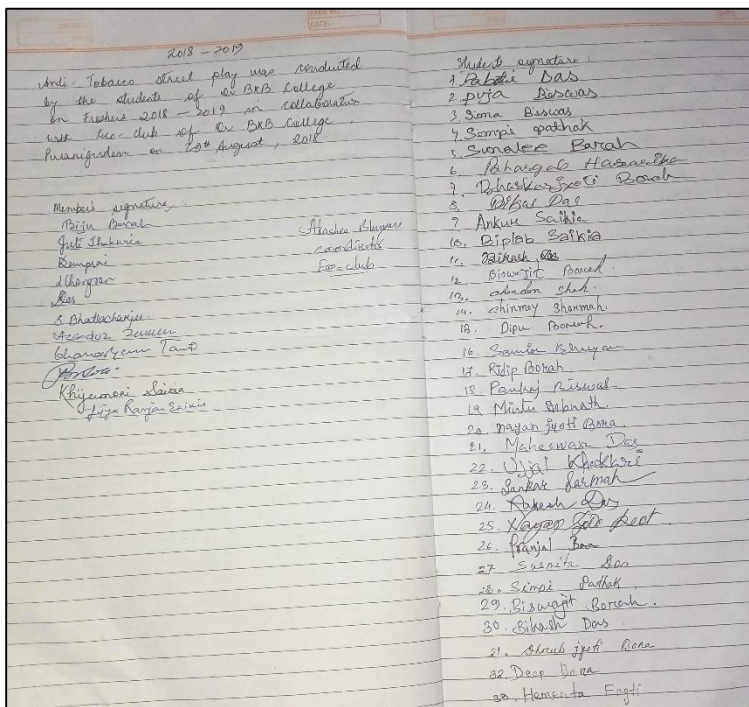 PAGE NO.
DATE:
2018 - 2019
Anti-Tobacco street play was conducted
by the students of Dr BKB College
on Freshers 2018-2019 in collaboration
with Eco-club of Dr BKB College,
Puranigudam on 29th August, 2018.
Members signature:
Biju Barah
Juti Thakuria
S Bhattacharjee
Ghanashyam Tanti
Khijumoni Saikia
Jiya Ranjan Saikia
Bhuyan
coordinator
Eco-club
Students signature:
1. Das
2. puja Biswas
3. Sima Biswas
4. Simpi pathak
5. Sunalee Barah
6. Hazarika
7. Bhaskarjyoti Borah
8. Dibas Das
9. Ankur Saikia
10. Biplab Saikia
11. Bikash Das
12. Biswajit Borah
13. chandan shah.
14. chinmoy sharmah.
15. Dipu Borah.
16. Samir Bhuyan
17. Ridip Borah
18. Pankaj Biswas
19. Mintu Debnath
20. nayan jyoti Bora
21. Maheswar Das
22. Ujjal
23. Sankar Sarmah
24. Rakesh Das
25. Nayan
26. Pranjal Bora
27. Susmita Das
28. Simpi Pathak.
29. Biswajit Borah.
30. Bikash Das
31. Dhrub jyoti Bora
32. Deep Bora
33. Hementa Engti